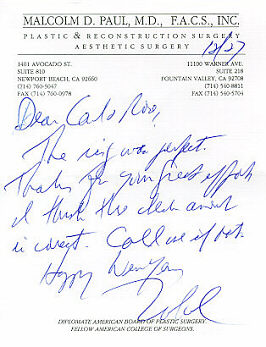 MALCOLM D. PAUL, M.D., F.A.C.S., INC.
PLASTIC & RECONSTRUCTION SURGERY
AESTHETIC SURGERY
12/27
1401 AVOCADO ST.
SUITE 810
NEWPORT BEACH, CA 92660
(714) 760-5047
FAX (714) 760-0978
11100 WARNER AVE.
SUITE 218
FOUNTAIN VALLEY, CA 92708
(714) 540-8811
FAX (714) 540-5704
Dear
The ring was perfect.
Thanks for your great effort
I think the check amount
is correct. Call me if not.
Happy New Year
DIPLOMATE AMERICAN BOARD OF PLASTIC SURGERY.
FELLOW AMERICAN COLLEGE OF SURGEONS.